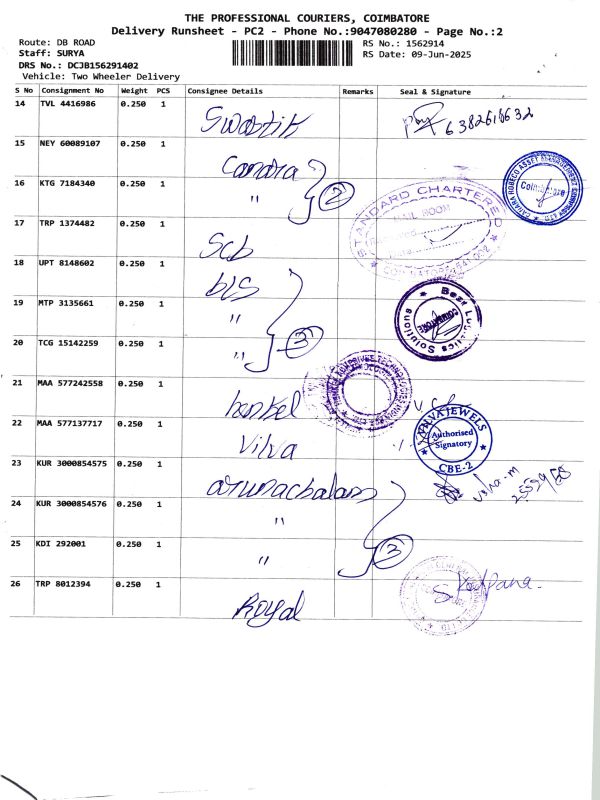 THE PROFESSIONAL COURIERS, COIMBATORE
Delivery Runsheet - PC2 - Phone No.:9047080280 - Page No.:2
Route: DB ROAD
RS No.: 1562914
Staff: SURYA
RS Date: 09-Jun-2025
DRS No.: DCJB156291402
Vehicle: Two Wheeler Delivery
S No Consignment No Weight PCS Consignee Details Remarks Seal & Signature
14 TVL 4416986 0.250 1 Swastik 6382616632
15 NEY 60089107 0.250 1 Canara
16 KTG 7184340 0.250 1 " 2 STANDARD CHARTERED MAIL ROOM CANARA ROBECO ASSET MANAGEMENT Coimbatore
17 TRP 1374482 0.250 1 Scb
18 UPT 8148602 0.250 1 bls
19 MTP 3135661 0.250 1 " Best Logistics Solutions COIMBATORE
20 TCG 15142259 0.250 1 " 3
21 MAA 577242558 0.250 1 henkel
22 MAA 577137717 0.250 1 Vilva VILVA JEWELS Authorised Signatory CBE-2
23 KUR 3000854575 0.250 1 arunachalam Usha.m
24 KUR 3000854576 0.250 1 "
25 KDI 292001 0.250 1 " 3
26 TRP 8012394 0.250 1 Royal